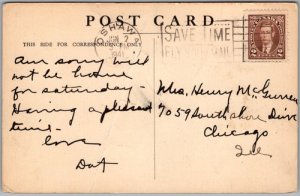 POST CARD
THIS SIDE FOR CORRESPONDENCE ONLY
OSHAWA
JUN 7
1941
SAVE TIME
Am sorry will
not be home
for saturday
Having a pleasant
time.
Love
Dot
Mrs. Henry McGurren
7059 South shore Drive
Chicago
Ill